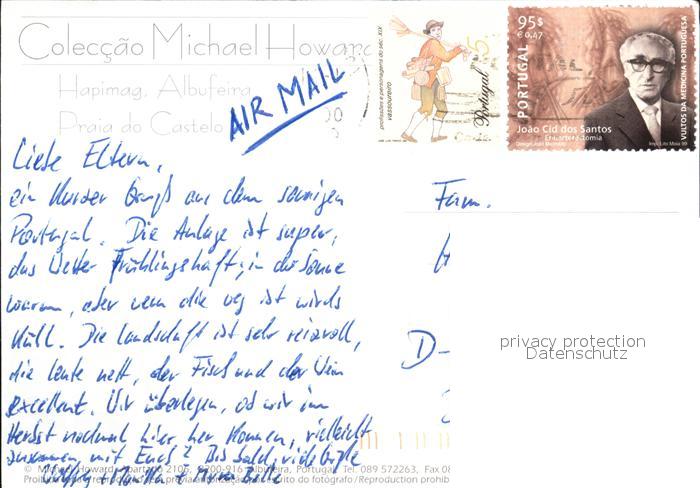 Colecção Michael Howard
Hapimag, Albufeira
Praia do Castelo
AIR MAIL
profissões e personagens do séc. XIX
vassoureiro
Portugal
95$
€ 0,47
PORTUGAL
João Cid dos Santos
Endarterectomia
VULTOS DA MEDICINA PORTUGUESA
Liebe Eltern,
ein kurzer Gruß aus dem sonnigen
Portugal. Die Anlage ist super,
das Wetter frühlingshaft; in der Sonne
warm, aber wenn die weg ist wirds
kühl. Die Landschaft ist sehr reizvoll,
die Leute nett, der Fisch und der Wein
excellent. Wir überlegen, ob wir im
Herbst nochmal hier her kommen, vielleicht
zusammen mit Euch? Bis bald, viele Grüße
Fam.
D-
privacy protection
Datenschutz
© Michael Howard, Apartado 2105, 8200-916 Albufeira, Portugal. Tel. 089 572263, Fax 08